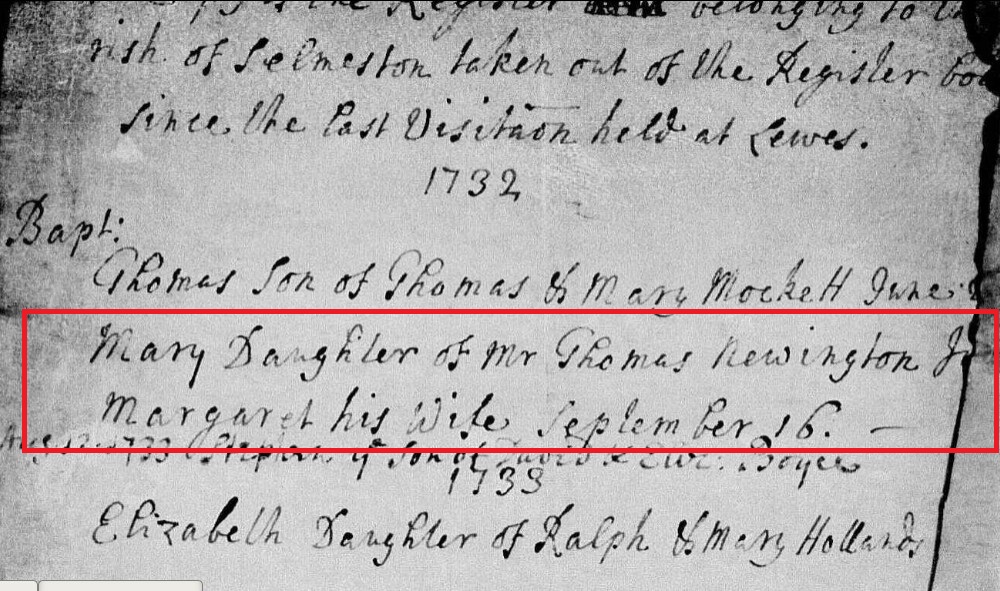 is the Register belonging to
rish of Selmeston taken out of the Register boo
since the last Visitaon held at Lewes.
1732
Bapt:
Thomas Son of Thomas & Mary Mockett June
Mary Daughter of Mr Thomas Newington
Margaret his Wife September 16.
1733 Stephen ye Son of David & Eliz: Boyce
1733
Elizabeth Daughter of Ralph & Mary Hollands